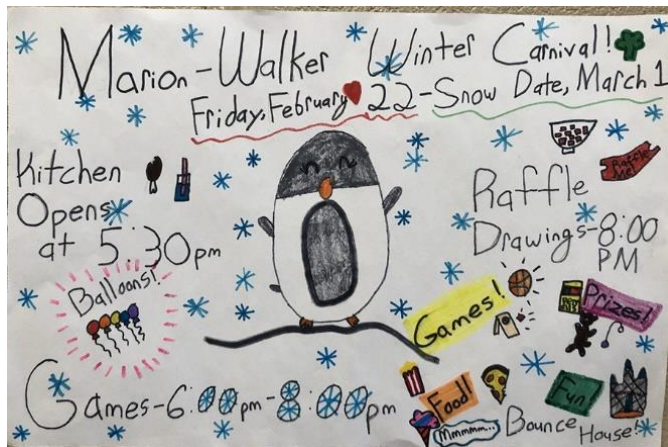 Marion-Walker Winter Carnival!
Friday, February 22-Snow Date, March 1
Kitchen
Opens
at 5:30pm
Raffle
Me!
Raffle
Drawings-8:00
PM
Balloons!
Games!
Prizes!
Games-6:00pm-8:00pm
Food!
Mmmmm...
Fun!
Bounce
House!